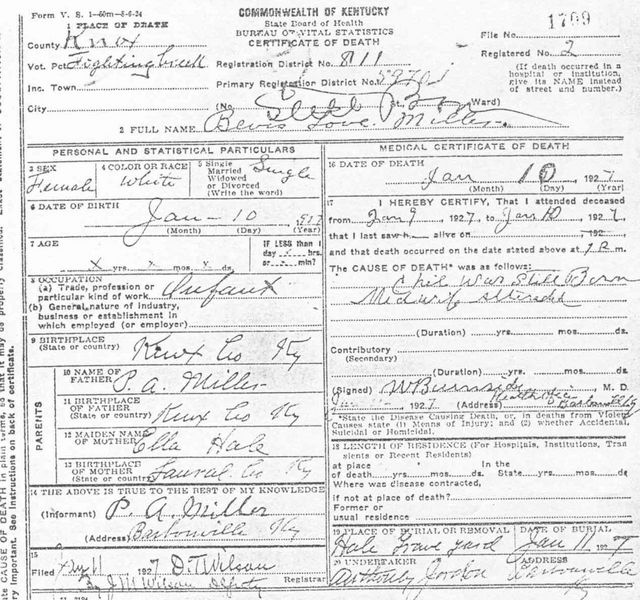 Form V. S. 1-60m-8-6-24
COMMONWEALTH OF KENTUCKY
State Board of Health
BUREAU OF VITAL STATISTICS
CERTIFICATE OF DEATH
File No. 1709
Registered No. 2
(If death occurred in a hospital or institution, give its NAME instead of street and number.)
1 PLACE OF DEATH
County Knox
Vot. Pct Fighting creek
Registration District No. 811
Inc. Town
Primary Registration District No.
City (No. St. Ward)
Still Born
2 FULL NAME Love Miller
PERSONAL AND STATISTICAL PARTICULARS
3 SEX Female
4 COLOR OR RACE White
5 Single Married Widowed or Divorced (Write the word) Single
6 DATE OF BIRTH Jan - 10 1927
(Month) (Day) (Year)
7 AGE
x yrs. x mos. x ds.
IF LESS than 1 day hrs. or min?
8 OCCUPATION
(a) Trade, profession or particular kind of work Infant
(b) General nature of industry, business or establishment in which employed (or employer)
9 BIRTHPLACE (State or country) Knox Co Ky
PARENTS
10 NAME OF FATHER P. A. Miller
11 BIRTHPLACE OF FATHER (State or country) Knox Co Ky
12 MAIDEN NAME OF MOTHER Ella Hale
13 BIRTHPLACE OF MOTHER (State or country) Laurel Co Ky
14 THE ABOVE IS TRUE TO THE BEST OF MY KNOWLEDGE
(Informant) P. A. Miller
(Address) Barbourville Ky
15
Filed 11 1927 D. T. Wilson
J M Wilson Deputy Registrar
MEDICAL CERTIFICATE OF DEATH
16 DATE OF DEATH
Jan 10 1927
(Month) (Day) (Year)
17 I HEREBY CERTIFY, That I attended deceased
from Jan 9 1927, to Jan 10 1927
that I last saw h alive on 192
and that death occurred on the date stated above at 1 P. m.
The CAUSE OF DEATH* was as follows:
Chil was Still Born
Midwife attended
(Duration) yrs. mos. ds.
Contributory
(Secondary)
(Duration) yrs. mos. ds.
(Signed) W Burnside M. D.
1927 (Address) Barbourville Ky
*State the Disease Causing Death, or, in deaths from Violent Causes state (1) Means of Injury; and (2) whether Accidental, Suicidal or Homicidal.
18 LENGTH OF RESIDENCE (For Hospitals, Institutions, Transients or Recent Residents)
At place of death yrs. mos. ds. In the State yrs. mos. ds.
Where was disease contracted,
if not at place of death?
Former or usual residence
19 PLACE OF BURIAL OR REMOVAL Hale Grave Yard
DATE OF BURIAL Jan 11 1927
20 UNDERTAKER Anthony Jordon
ADDRESS Barbourville Ky